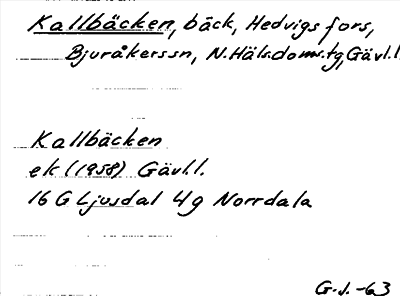 Kallbäcken, bäck, Hedvigsfors,
Bjuråkerssn, N.Häls.doms.tg, Gävl.l.
Kallbäcken
ek (1958) Gävl.l.
16 G Ljusdal 4g Norrdala
G.J.-63